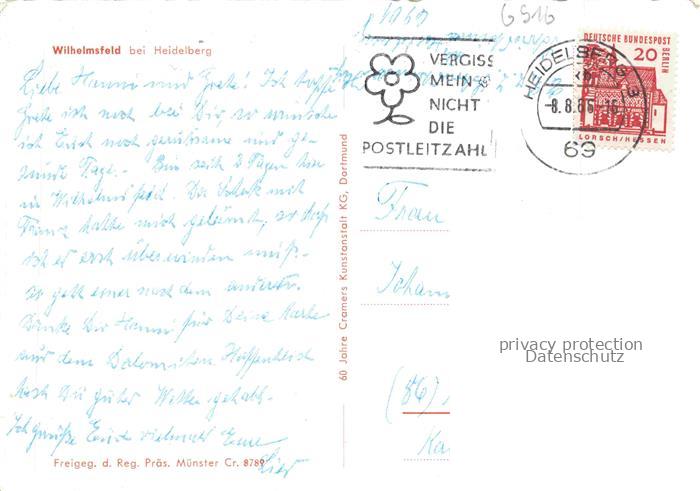 6916
Wilhelmsfeld bei Heidelberg
VERGISS
MEIN
NICHT
DIE
POSTLEITZAHL
HEIDELBERG 3
-8.8.66-16
69
DEUTSCHE BUNDESPOST
BERLIN
20
LORSCH/HESSEN
Liebe Hanni und Grete! Ich hoffe
Grete ist noch bei Dir, so wünsche
ich Euch noch geruhsame und ge-
sunde Tage. Bin seit 3 Tagen hier
in Wilhelmsfeld. Der Schock mit
Franz hatte mich gelähmt, so daß
ich es erst überwinden muß.
so geht einer nach dem anderen.
Danke Dir Hanni für Deine Karte
aus den Dolomiten Hoffentlich
hast Du gutes Wetter gehabt.
Ich grüße Euch vielmals Eure
60 Jahre Cramers Kunstanstalt KG, Dortmund
Frau
Johann
(86)
Ka
privacy protection
Datenschutz
Freigeg. d. Reg. Präs. Münster Cr. 8789